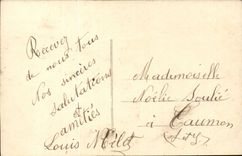 Recevez
de nous tous
Nos sincères
salutations
et
amitiés
Louis
Mademoiselle
Noélie Soulié
à Caumon